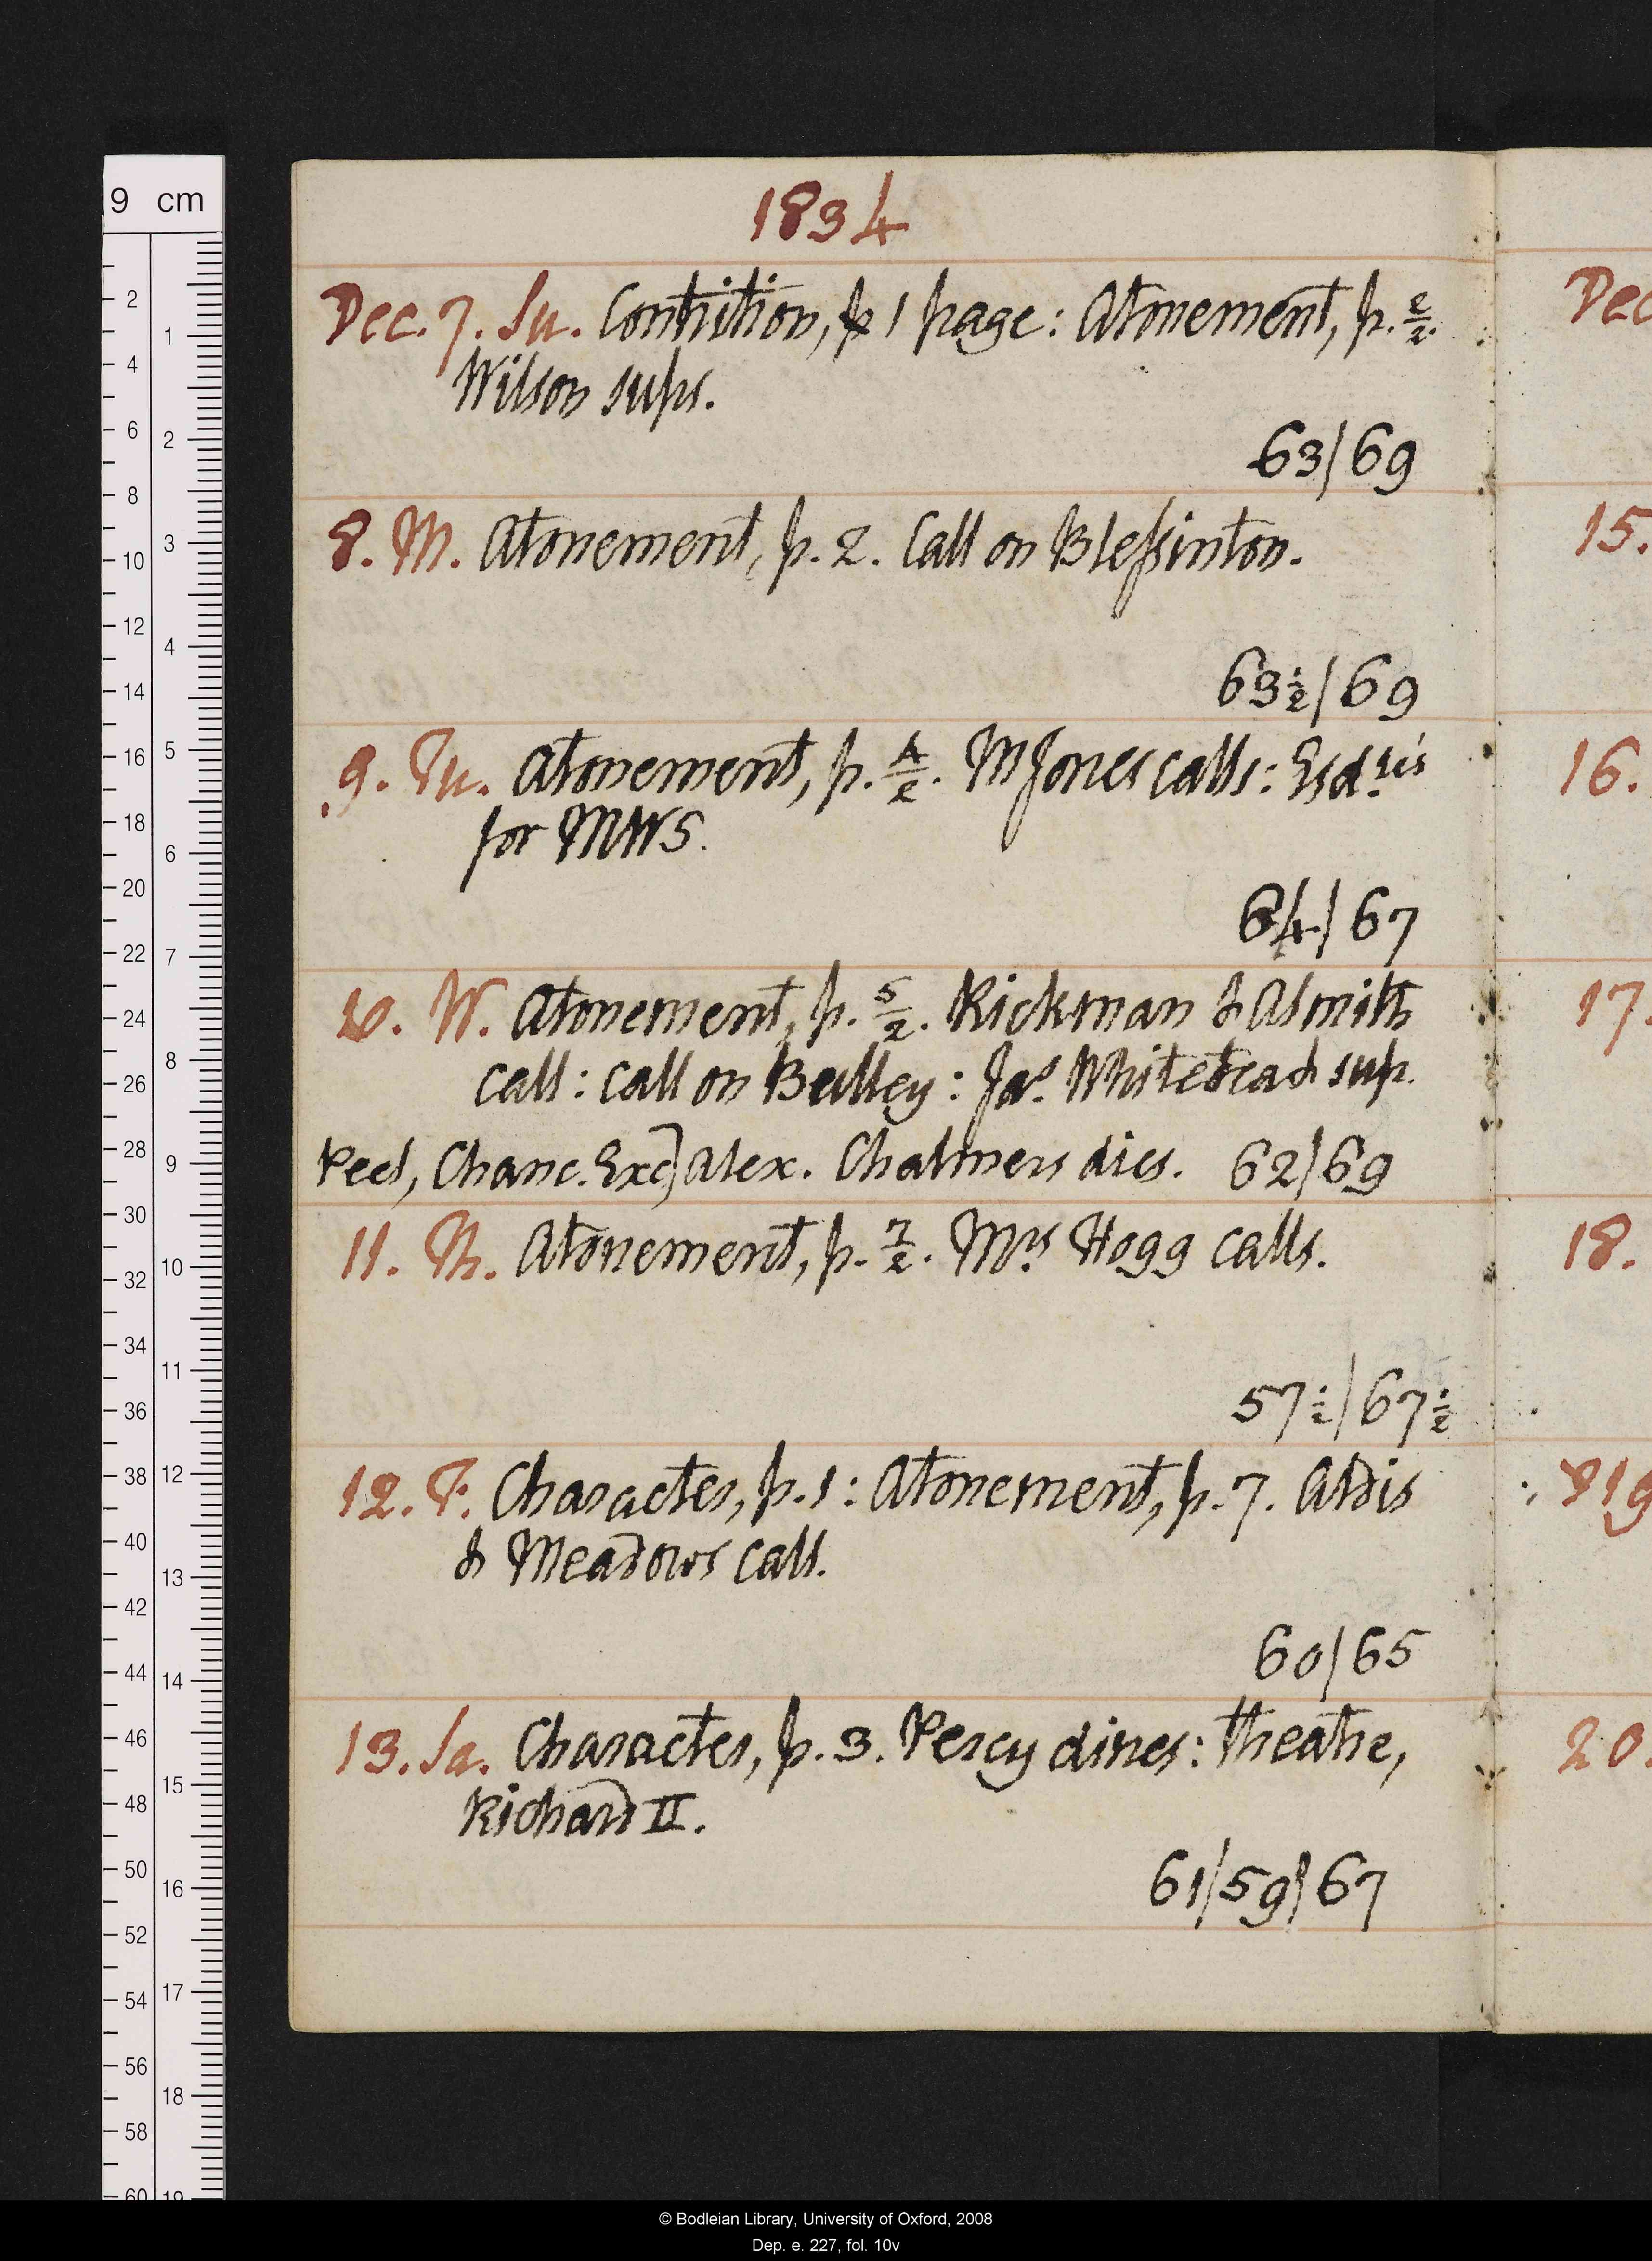 1834
Dec. 7. Su. Contrition, p 1 page: Atonement, p. 2/2.
Wilson sups.
63/69
8. M. Atonement, p. 2. Call on Blessinton.
63½/69
9. Tu. Atonement, p. 4/2. M Jones calls: Esd.ris
for MWS.
64/67
10. W. Atonement, p. 5/2. Rickman & A Smith
call: call on Bulley: Jas. Whitehead sup.
Peel, Chanc. Exq] Alex. Chalmers dies. 62/69
11. Th. Atonement, p. 7/2. Mrs Hogg calls.
57½/67½
12. F. Character, p. 1: Atonement, p. 7. Aldis
& Meadows call.
60/65
13. Sa. Character, p. 3. Percy dines: theatre,
Richard II.
61/59/67
Dec
15.
16.
17.
18.
19
20.
9 cm
2
4
6
8
10
12
14
16
18
20
22
24
26
28
30
32
34
36
38
40
42
44
46
48
50
52
54
56
58
60
1
2
3
4
5
6
7
8
9
10
11
12
13
14
15
16
17
18
19
© Bodleian Library, University of Oxford, 2008
Dep. e. 227, fol. 10v